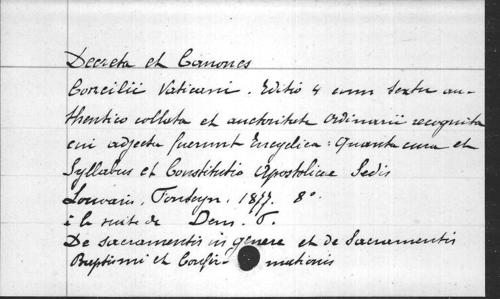 Decreta et Canones
Concilii Vaticani. Editio 4 cum textu au-
thentico collata et auctoritate Ordinarii recognita
cui adjecta fuerunt Encyclica: Quanta cura et
Syllabus et Constitutio Apostolicae Sedis
Lovanii. Fonteyn. 1877. 8°.
à la suite de Dens. T.
De sacramentis in genere et de Sacramentis
Baptismi et Confir- mationis